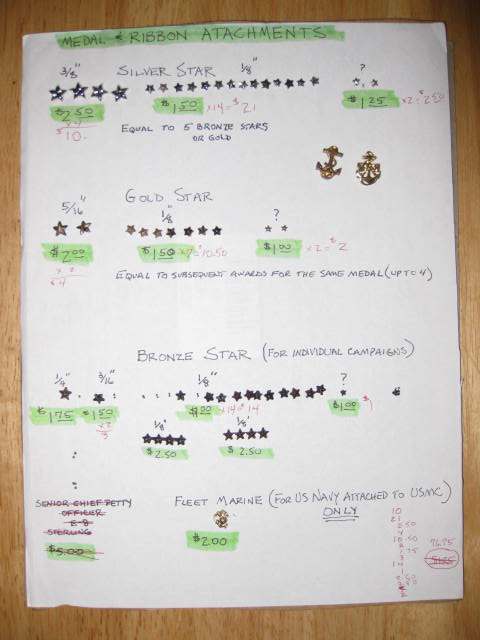 MEDAL & RIBBON ATACHMENTS
3/8" SILVER STAR 1/8" ?
$2.50 $1.50 x14=$21 $1.25 x2=$2.50
x4
$10.
EQUAL TO 5 BRONZE STARS
OR GOLD
GOLD STAR
5/16" 1/8" ?
$2.00 $1.50 x7=$10.50 $1.00 x2=$2
x2
$4
EQUAL TO SUBSEQUENT AWARDS FOR THE SAME MEDAL (UP TO 4)
BRONZE STAR (FOR INDIVIDUAL CAMPAIGNS)
1/4" 3/16" 1/8" ?
$1.75 $1.50 $1.00 x14=$14 $1.00 $1
x2
3
1/8" 1/8"
$2.50 $2.50
SENIOR CHIEF PETTY
OFFICER
E-8
STERLING
$5.00
FLEET MARINE (FOR US NAVY ATTACHED TO USMC)
ONLY
$2.00
10
21
2.50
4
10.50
2
1.75
3
14
1
2.50
2.50
2
76.75